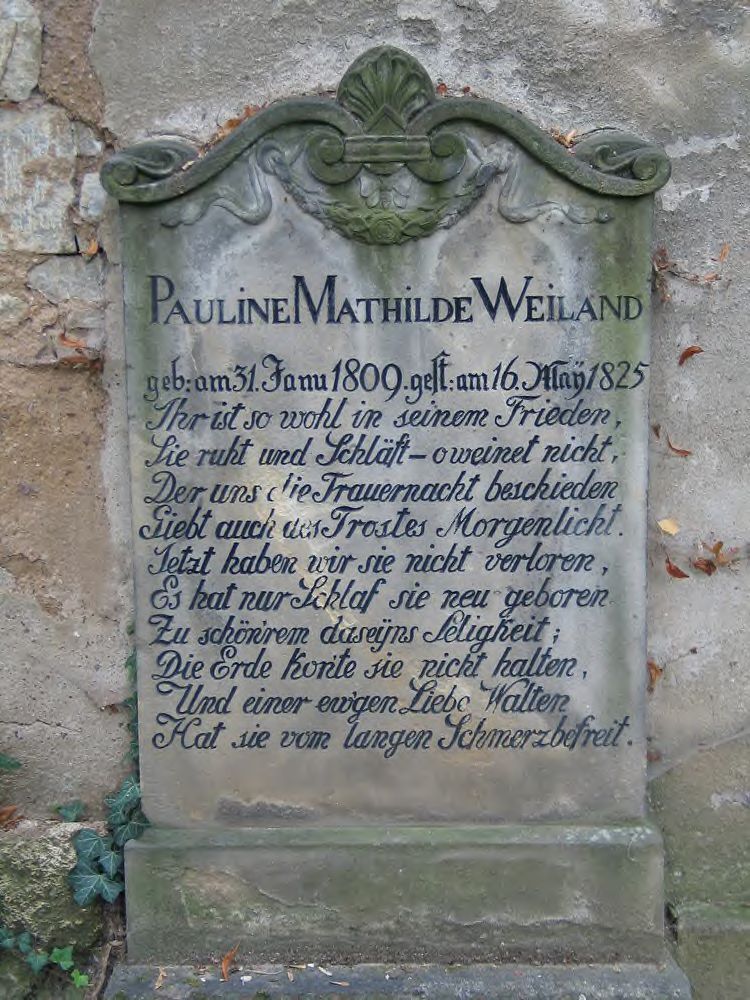 PAULINE MATHILDE WEILAND
geb: am 31. Janu 1809. gest: am 16. May 1825
Ihr ist so wohl in seinem Frieden,
Sie ruht und Schläft – o weinet nicht,
Der uns die Trauernacht beschieden
Giebt auch des Trostes Morgenlicht.
Jetzt haben wir sie nicht verloren,
Es hat nur Schlaf sie neu geboren
Zu schön'rem daseÿns Seligkeit;
Die Erde kon̄te sie nicht halten,
Und einer ew'gen Liebe Walten
Hat sie vom langen Schmerz befreit.